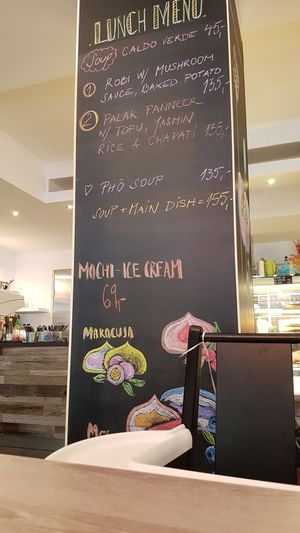 LUNCH MENU
SOUP CALDO VERDE 45,-
1 ROBI W/ MUSHROOM
SAUCE, BAKED POTATO
135,-
2 PALAK PANNEER
W/ TOFU, YASMIN
RICE & CHAPATI 135,-
♡ PHỞ SOUP 135,-
SOUP + MAIN DISH = 155,-
MOCHI - ICE CREAM
69,-
MARACUJA